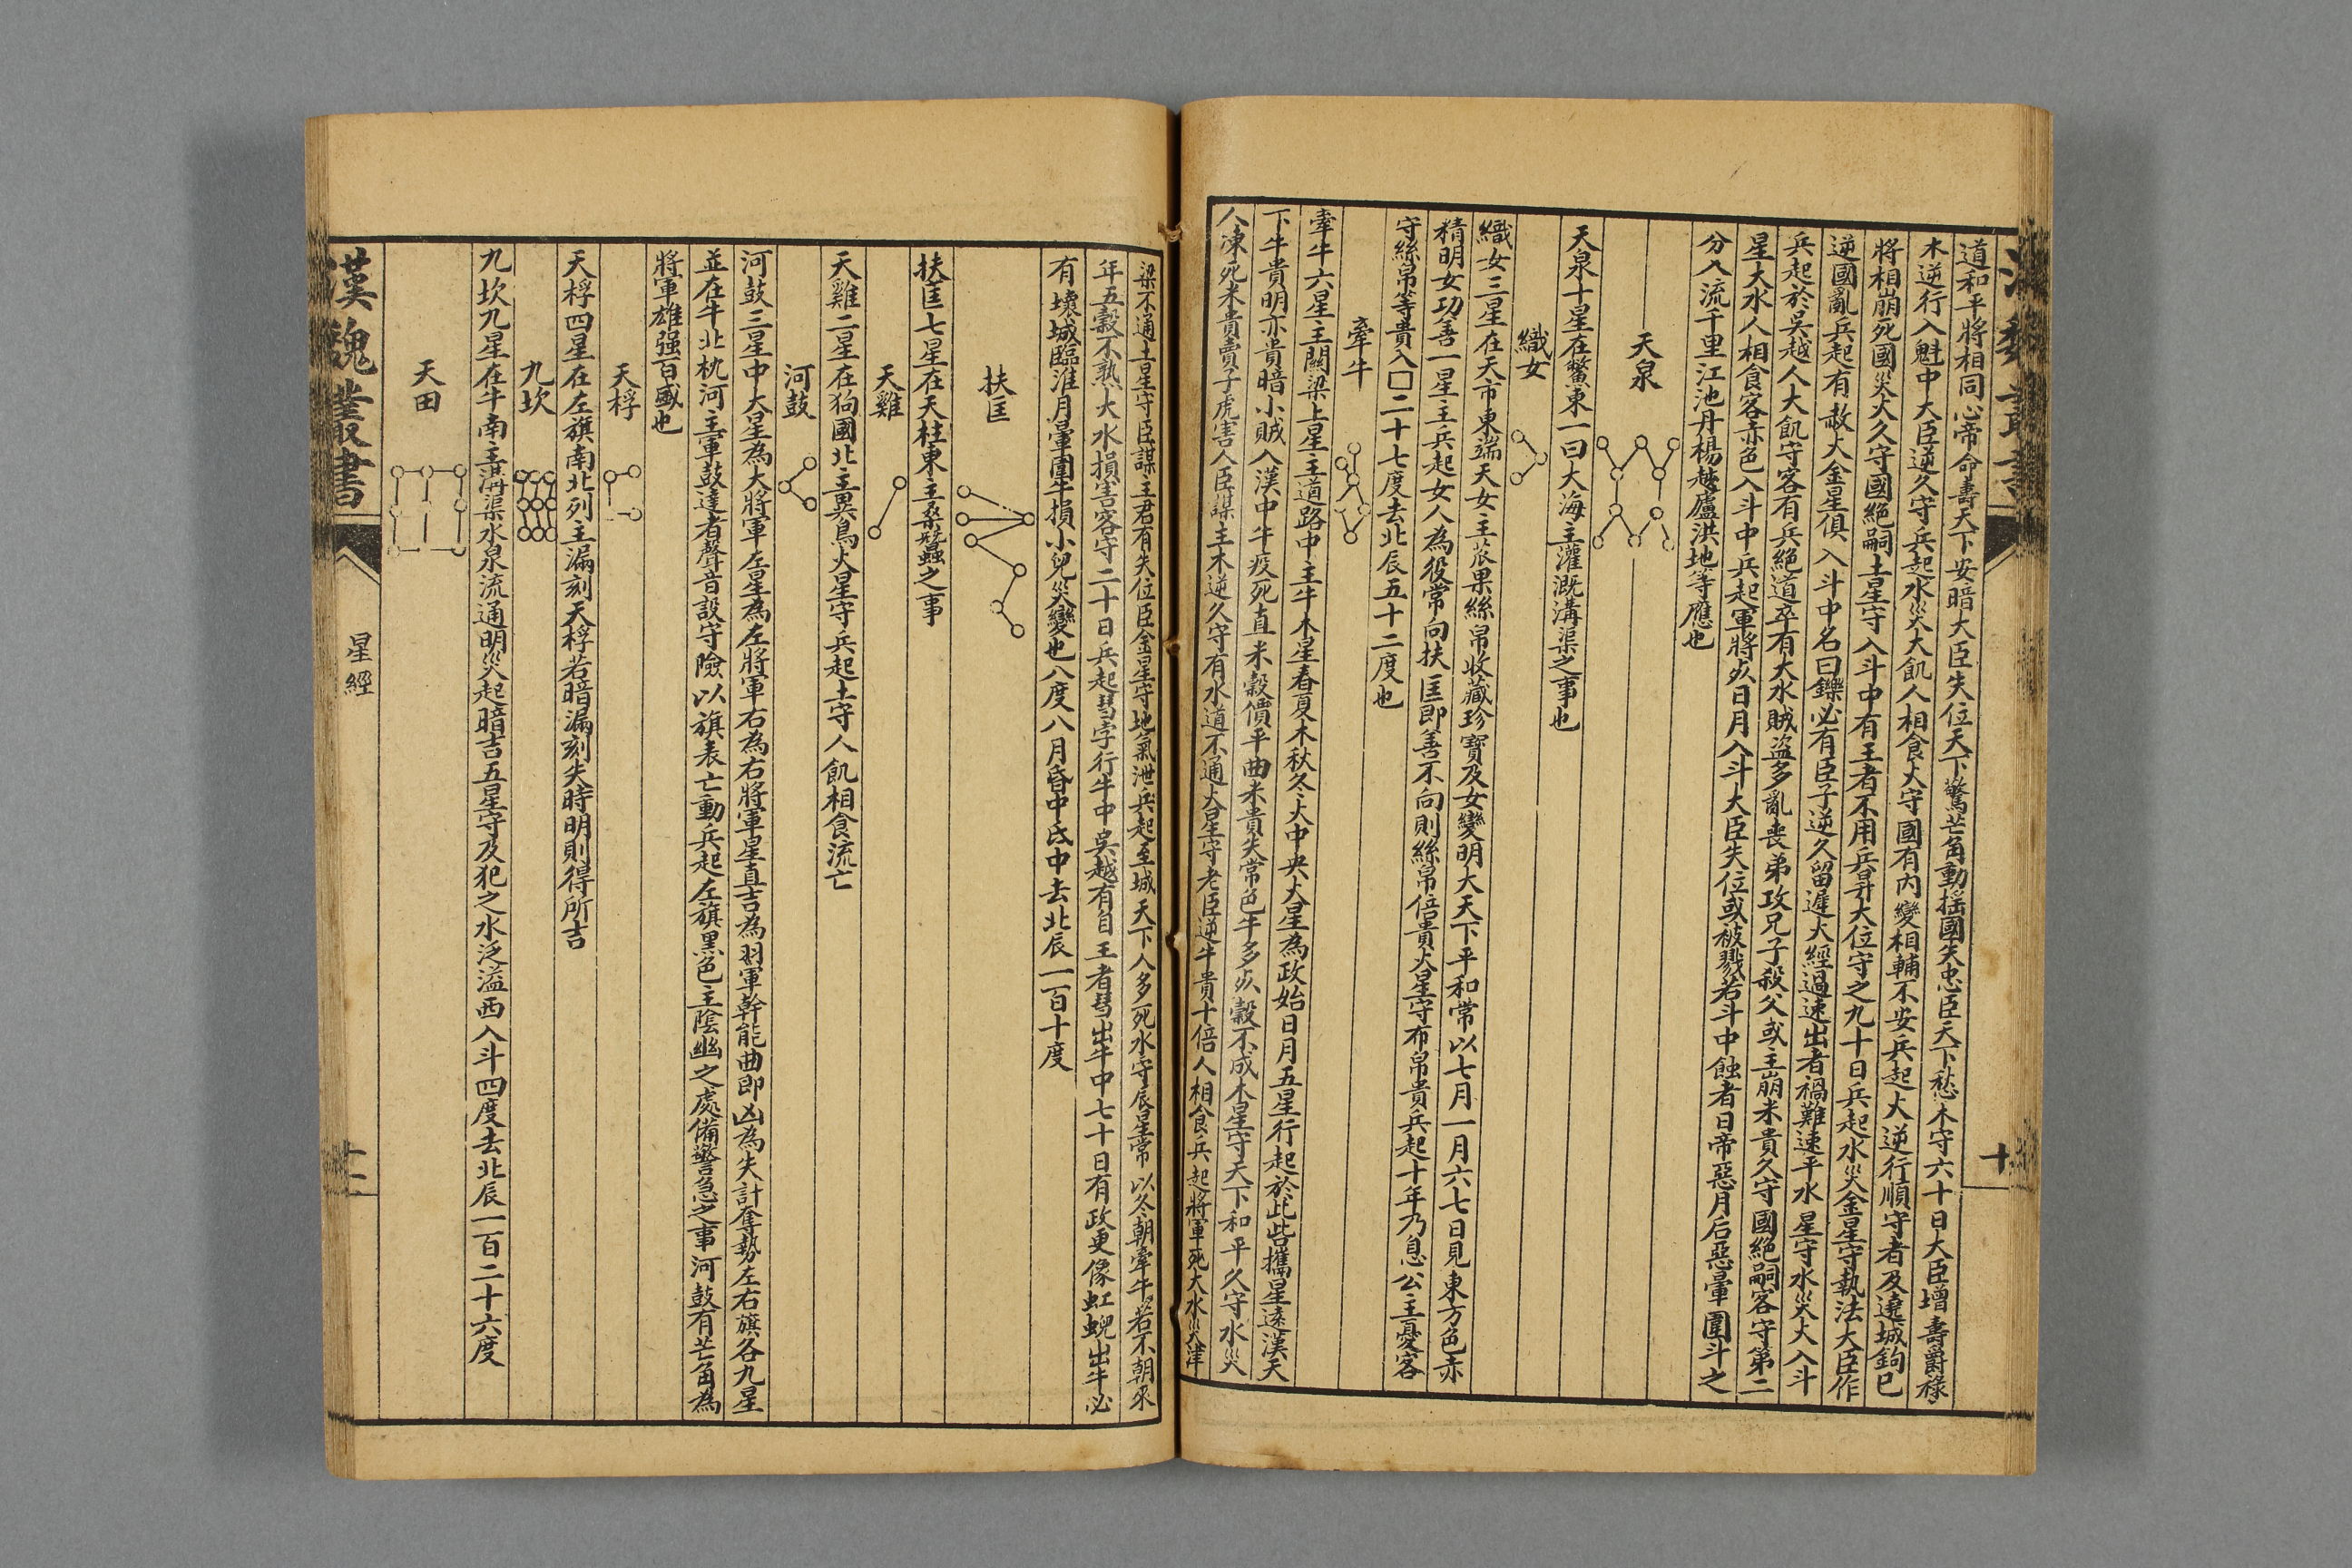 漢魏叢書
十
道和平將相同心帝命壽天下安暗大臣失位天下驚芒角動搖國失忠臣天下愁木守六十日大臣增壽爵祿
木逆行入魁中大臣逆久守兵起水災大飢人相食火守國有內變相輔不安兵起火逆行順守者及遶城鉤巳
將相崩死國災火久守國絕嗣土星守入斗中有王者不用兵昇大位守之九十日兵起水災金星守執法大臣作
逆國亂兵起有赦火金星俱入斗中名曰鑠必有臣子逆久留遲火經過速出者禍難速平水星守水災大入斗
兵起於吳越人大飢守客有兵絕道卒有大水賊盜多亂喪弟攻兄子殺父或主崩米貴久守國絕嗣客守第二
星大水人相食客赤色入斗中兵起軍將亡日月入斗大臣失位或被戮若斗中蝕者日帝惡月后惡暈圍斗之
分入流千里江池丹楊越廬洪地等應也
天泉
天泉十星在鱉東一曰大海主灌溉溝渠之事也
織女
織女三星在天市東端天女主苽果絲帛收藏珍寶及女變明大天下平和常以七月一月六七日見東方色赤
精明女功善一星主兵起女人為役常向扶匡即善不向則絲帛倍貴火星守布帛貴兵起十年乃息公主憂客
守絲帛等貴入□二十七度去北辰五十二度也
牽牛
牽牛六星主關梁上星主道路中主牛木星春夏木秋冬火中央大星為政始日月五星行起於此皆攜星遠漢天
下牛貴明亦貴暗小賊入漢中牛疫死直米穀價平曲米貴失常色牛多死穀不成木星守天下和平久守水災
人凍死米貴賣子虎害人臣謀主木逆久守有水道不通大星守老臣逆牛貴十倍人相食兵起將軍死大水災津
梁不通土星守臣謀主君有失位臣金星守地氣泄兵起至城天下人多死水守辰星常以冬朝牽牛若不朝來
年五穀不熟大水損害客守二十日兵起彗孛行牛中吳越有自王者彗出牛中七十日有政更像虹蜺出牛必
有壞城臨淮月暈圍牛損小兒災變也八度八月昏中氐中去北辰一百十度
扶匡
扶匡七星在天柱東主桑蠶之事
天雞
天雞二星在狗國北主異鳥火星守兵起土守人飢相食流亡
河鼓
河鼓三星中大星為大將軍左星為左將軍右為右將軍星直吉為羽軍幹能曲即凶為失計奪勢左右旗各九星
並在牛北枕河主軍鼓達者聲音設守險以旗表亡動兵起左旗黑色主陰幽之處備警急之事河鼓有芒角為
將軍雄强百盛也
天桴
天桴四星在左旗南北列主漏刻天桴若暗漏刻失時明則得所吉
九坎
九坎九星在牛南主溝渠水泉流通明災起暗吉五星守及犯之水泛溢西入斗四度去北辰一百二十六度
天田
漢魏叢書
星經
十一